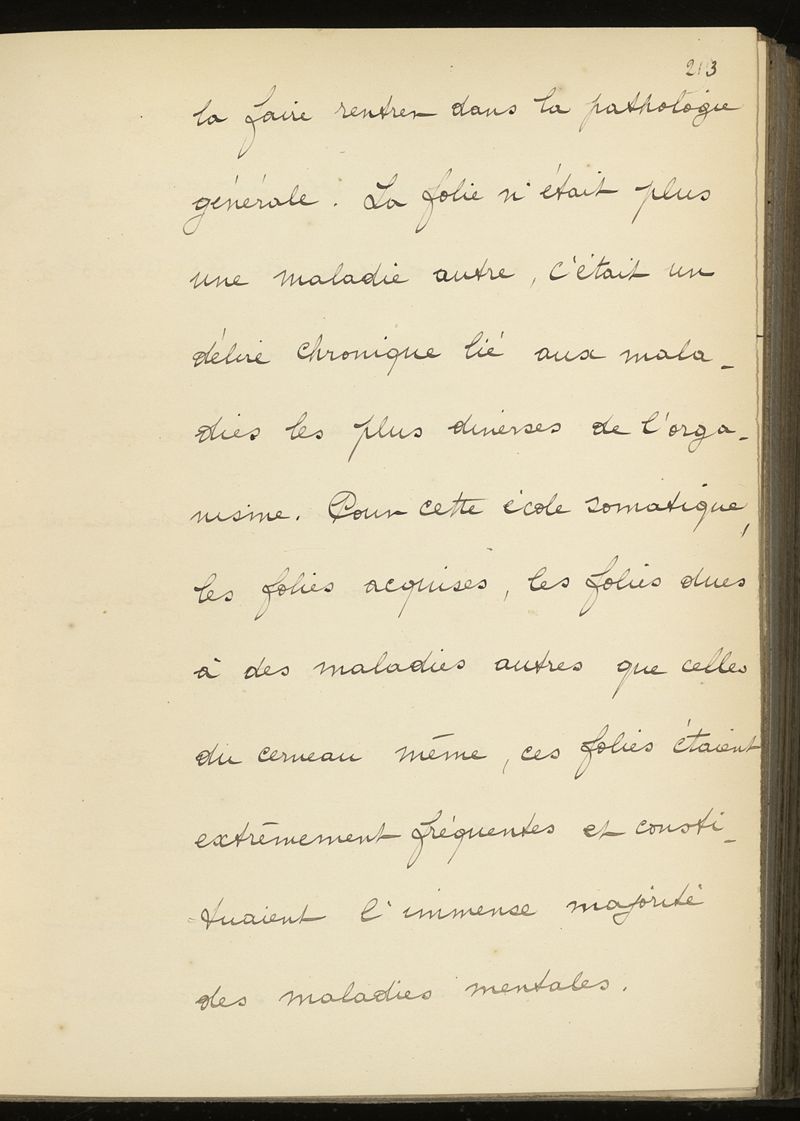 213
la faire rentrer dans la pathologie
générale. La folie n'était plus
une maladie autre, c'était un
délire chronique lié aux mala-
dies les plus diverses de l'orga-
nisme. Pour cette école somatique,
les folies acquises, les folies dues
à des maladies autres que celles
du cerveau même, ces folies étaient
extrêmement fréquentes et consti-
tuaient l'immense majorité
des maladies mentales.